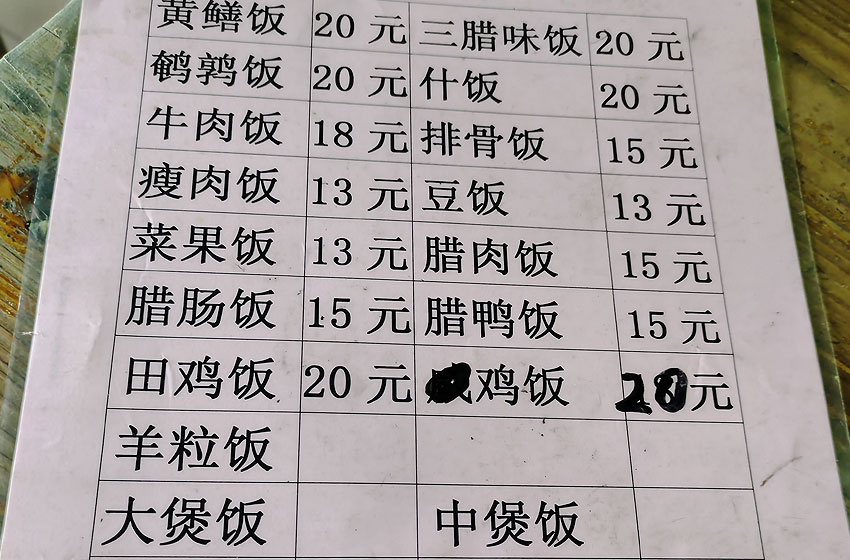 黄鳝饭 20 元 三腊味饭 20 元
鹌鹑饭 20 元 什饭 20 元
牛肉饭 18 元 排骨饭 15 元
瘦肉饭 13 元 豆饭 13 元
菜果饭 13 元 腊肉饭 15 元
腊肠饭 15 元 腊鸭饭 15 元
田鸡饭 20 元 鸡饭 元
羊粒饭
大煲饭 中煲饭